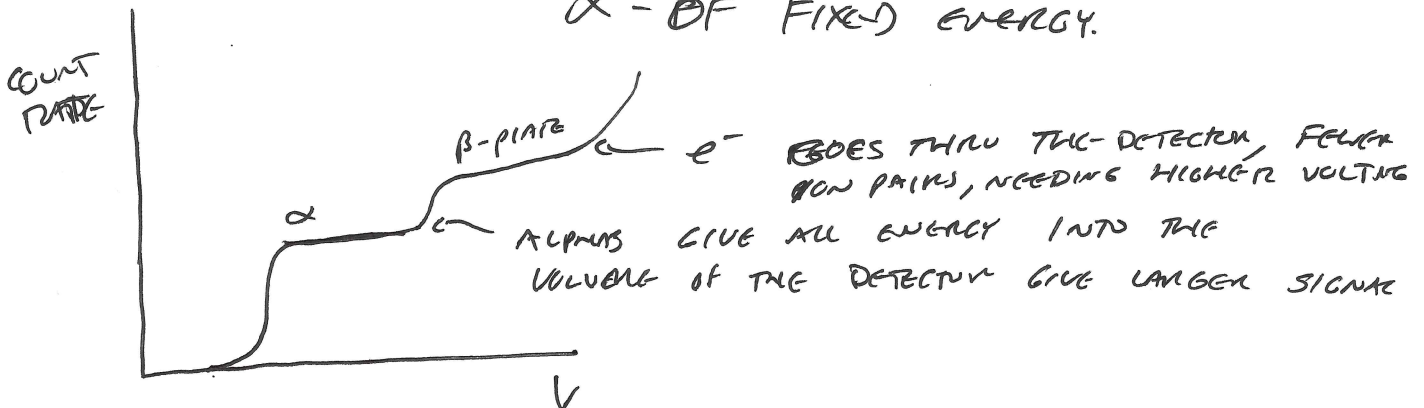 α - OF FIXED ENERGY.
COUNT
RATE
β-PLATE
e⁻ GOES THRU THE DETECTOR, FEWER
ION PAIRS, NEEDING HIGHER VOLTNG
α
ALPHAS GIVE ALL ENERGY INTO THE
VOLUME OF THE DETECTOR GIVE LARGER SIGNAL
V